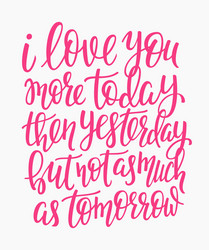 i love you
more today
then yesterday
but not as much
as tomorrow